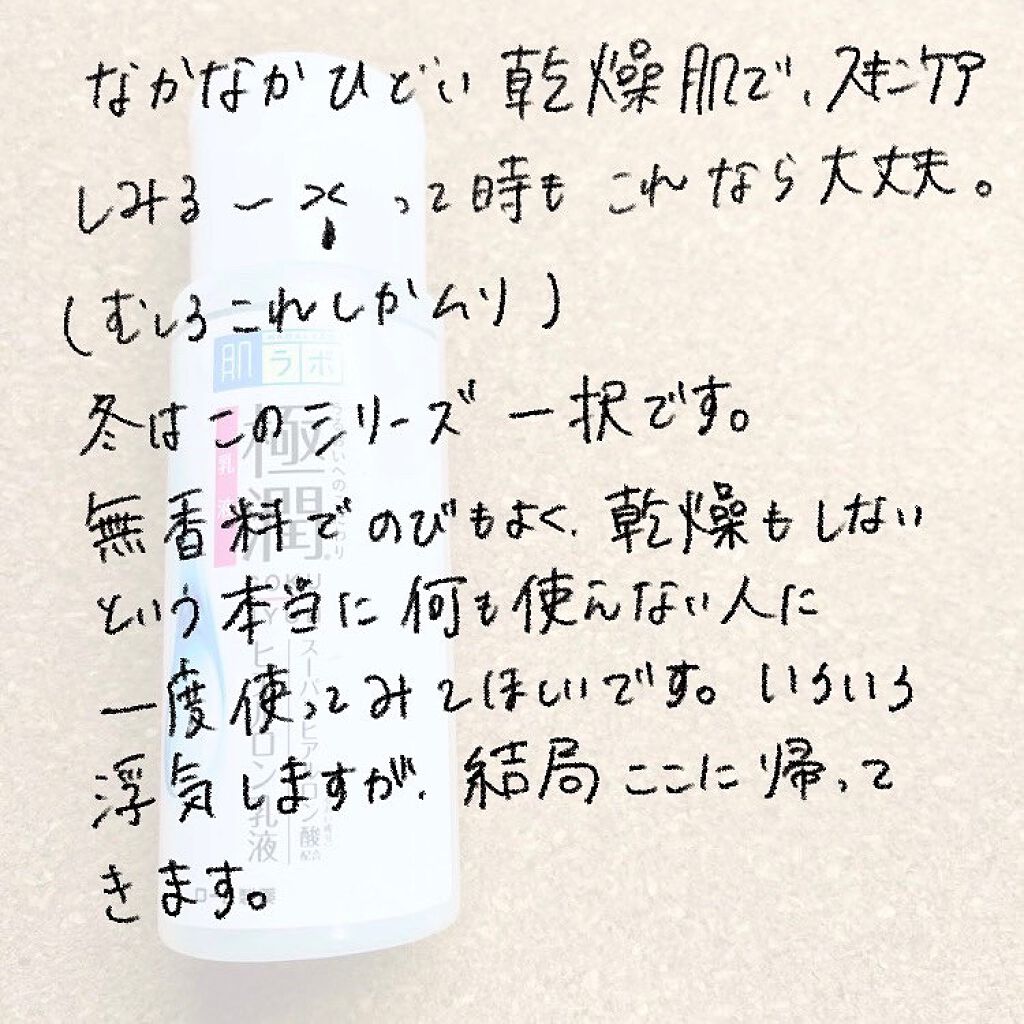 なかなかひどい乾燥肌で、スキンケア
しみるーx って時もこれなら大丈夫。
(むしろこれしかムリ)
冬はこのシリーズ一択です。
無香料でのびもよく、乾燥もしない
という本当に何も使えない人に
一度使ってみてほしいです。いろいろ
浮気しますが、結局ここに帰って
きます。
肌ラボ
極潤
乳液
ヒアルロン乳液
スーパーヒアルロン酸
配合